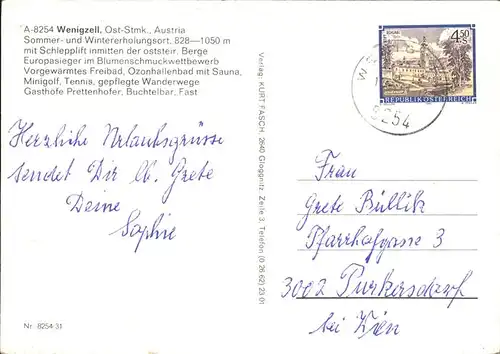 A-8254 Wenigzell, Ost-Stmk., Austria
Sommer- und Wintererholungsort, 828—1050 m
mit Schlepplift inmitten der oststeir. Berge
Europasieger im Blumenschmuckwettbewerb
Vorgewärmtes Freibad, Ozonhallenbad mit Sauna,
Minigolf, Tennis, gepflegte Wanderwege
Gasthöfe Prettenhofer, Buchtelbar, Fast
Herzliche Urlaubsgrüsse
sendet Dir lb. Grete
Deine
Sophie
Nr. 8254/31
Verlag: KURT FASCH, 2640 Gloggnitz, Zeile 3, Telefon (0 26 62) 23 01
4.50
REPUBLIK ÖSTERREICH
8254
Frau
Grete Büllik
Pfarrhofgasse 3
3002 Purkersdorf
bei Wien